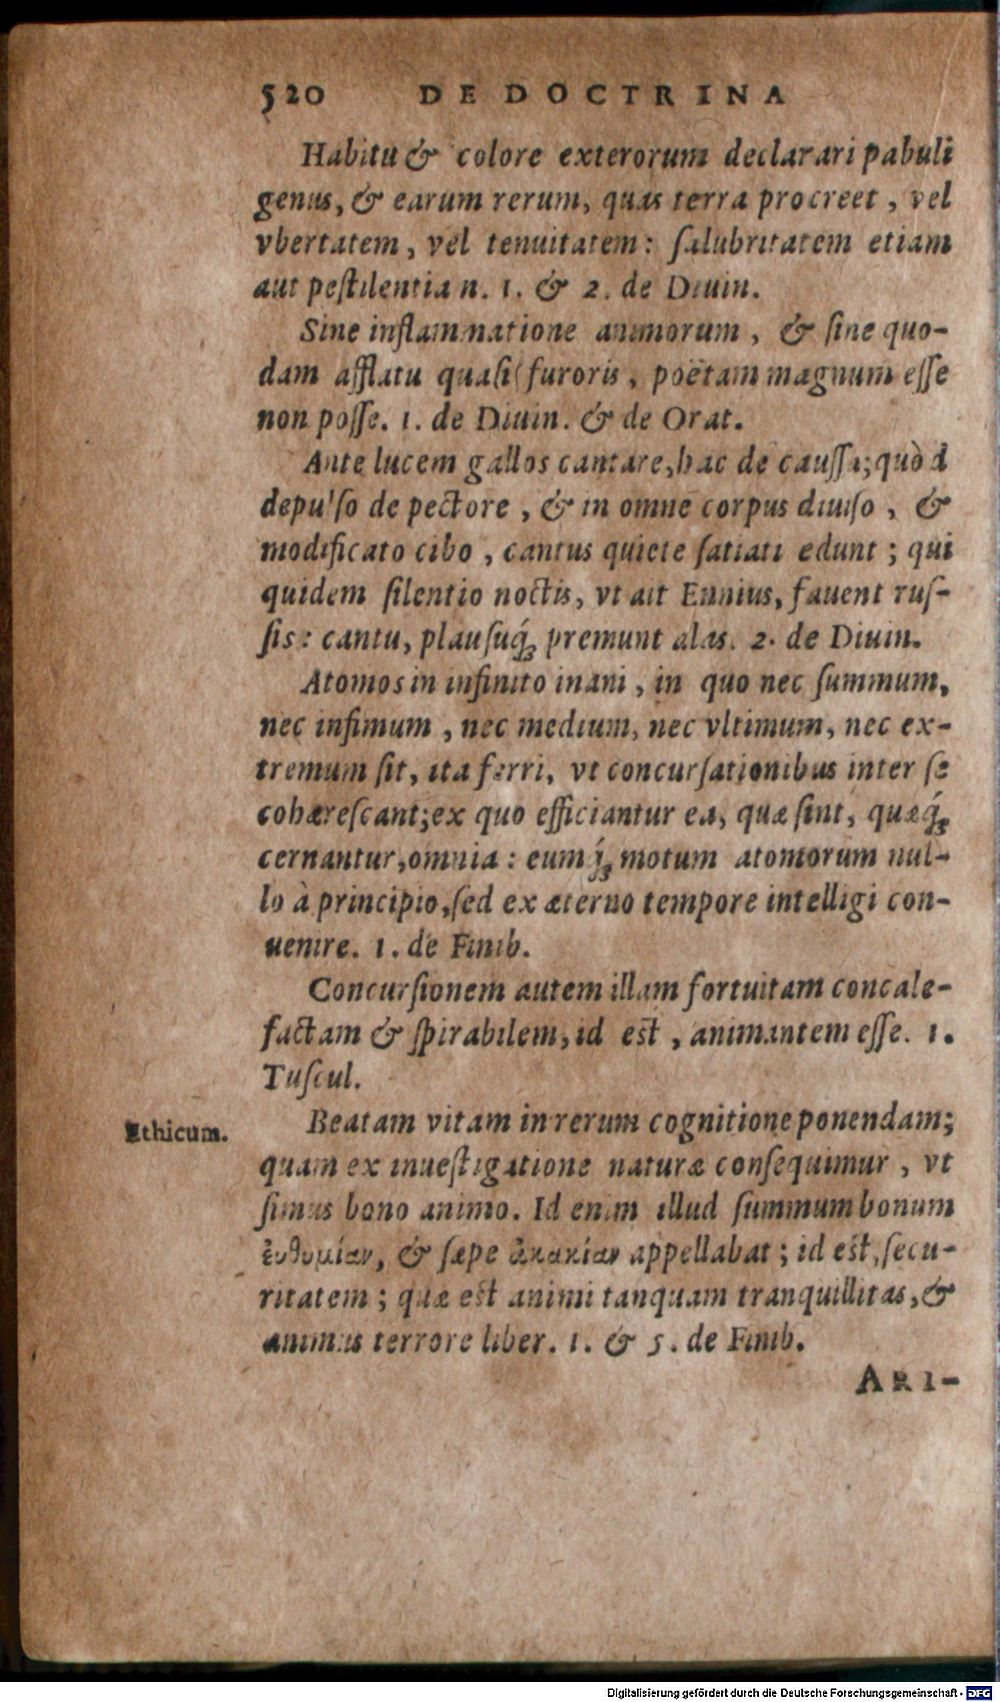 520 DE DOCTRINA
Habitu & colore exterorum declarari pabuli
genus, & earum rerum, quas terra procreet, vel
vbertatem, vel tenuitatem: ſalubritatem etiam
aut peſtilentiam. 1. & 2. de Diuin.
Sine inflammatione animorum, & ſine quo-
dam afflatu quaſi furoris, poëtam magnum eſſe
non poſſe. 1. de Diuin. & de Orat.
Ante lucem gallos cantare, hac de cauſſa; quòd
depulſo de pectore, & in omne corpus diuiſo, &
modificato cibo, cantus quiete ſatiati edunt; qui
quidem ſilentio noctis, vt ait Ennius, fauent ruſ-
ſis: cantu, plauſuq́ꝫ premunt alas. 2. de Diuin.
Atomos in infinito inani, in quo nec ſummum,
nec infimum, nec medium, nec vltimum, nec ex-
tremum ſit, ita ferri, vt concurſationibus inter ſe
cohæreſcant; ex quo efficiantur ea, quæ ſint, quæq́ꝫ
cernantur, omnia: eumq́ꝫ motum atomorum nul-
lo à principio, ſed ex æterno tempore intelligi con-
uenire. 1. de Finib.
Concurſionem autem illam fortuitam concale-
factam & ſpirabilem, id est, animantem eſſe. 1.
Tuſcul.
Ethicum.
Beatam vitam in rerum cognitione ponendam;
quam ex inueſtigatione naturæ conſequimur, vt
ſimus bono animo. Id enim illud ſummum bonum
ἐυθυμίαν, & ſæpe ἀκακίαν appellabat; id est, ſecu-
ritatem; quæ est animi tanquam tranquillitas, &
animus terrore liber. 1. & 5. de Finib.
ARI-
Digitalisierung gefördert durch die Deutsche Forschungsgemeinschaft - DFG